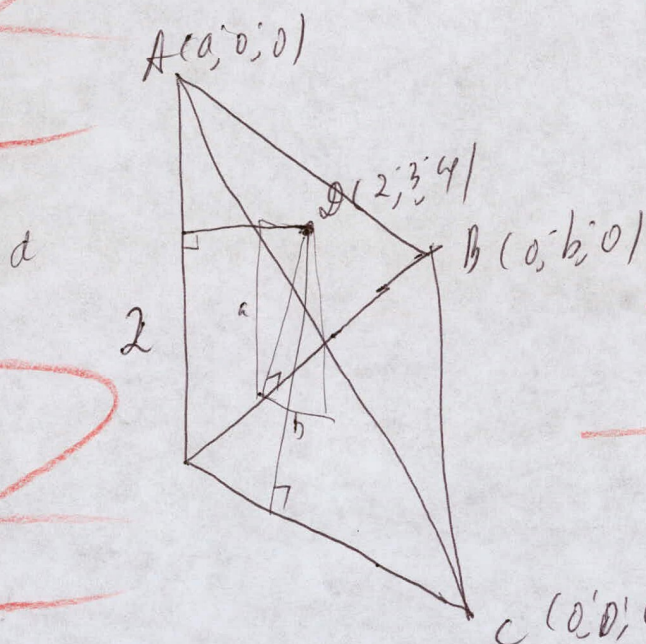 A(a; 0; 0)
D(2; 3; 4)
B (0; b; 0)
d
a
2
b
C (0; 0;